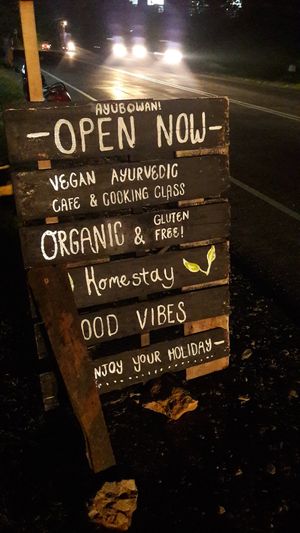 AYUBOWAN!
-OPEN NOW-
VEGAN AYURVEDIC
CAFE & COOKING CLASS
ORGANIC & GLUTEN FREE!
Homestay
OOD VIBES
NJOY YOUR HOLIDAY-